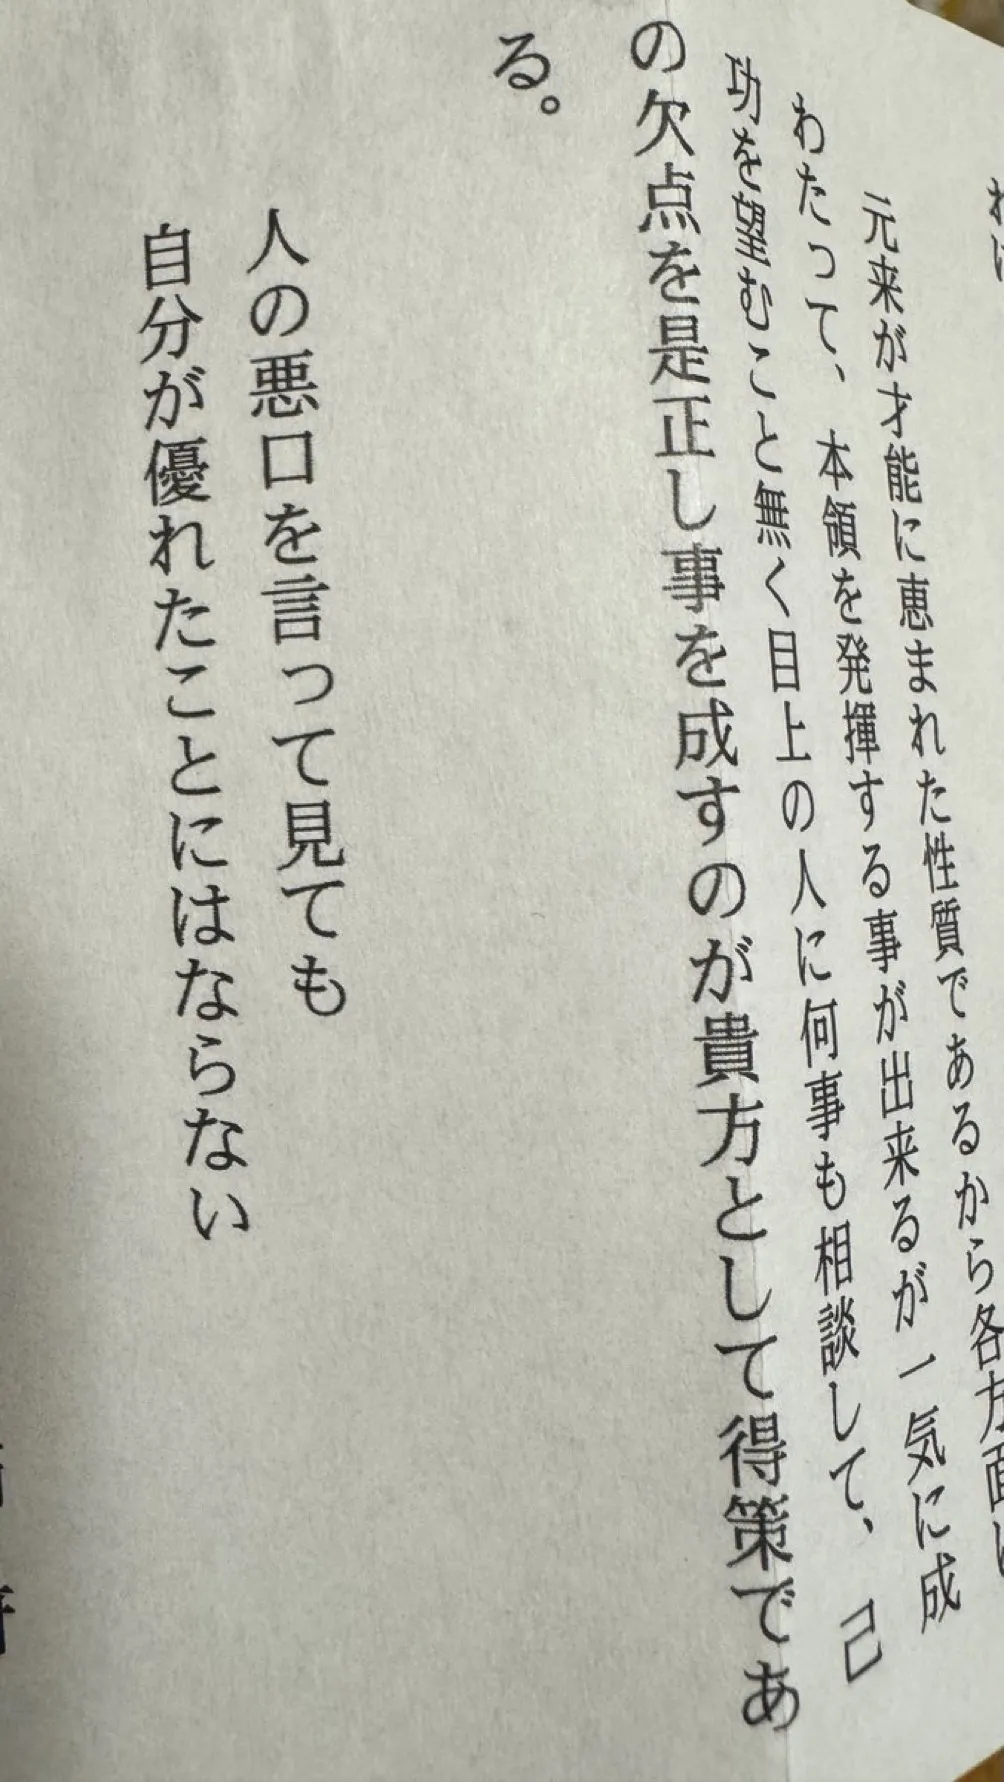 元来が才能に恵まれた性質であるから各方面に
わたって、本領を発揮する事が出来るが一気に成
功を躍ぬこと無く目上の人に何事も相談して、己
の欠点を是正し事を成すのが貴方として得策であ
る。
人の悪口を言って見ても
自分が優れたことにはならない